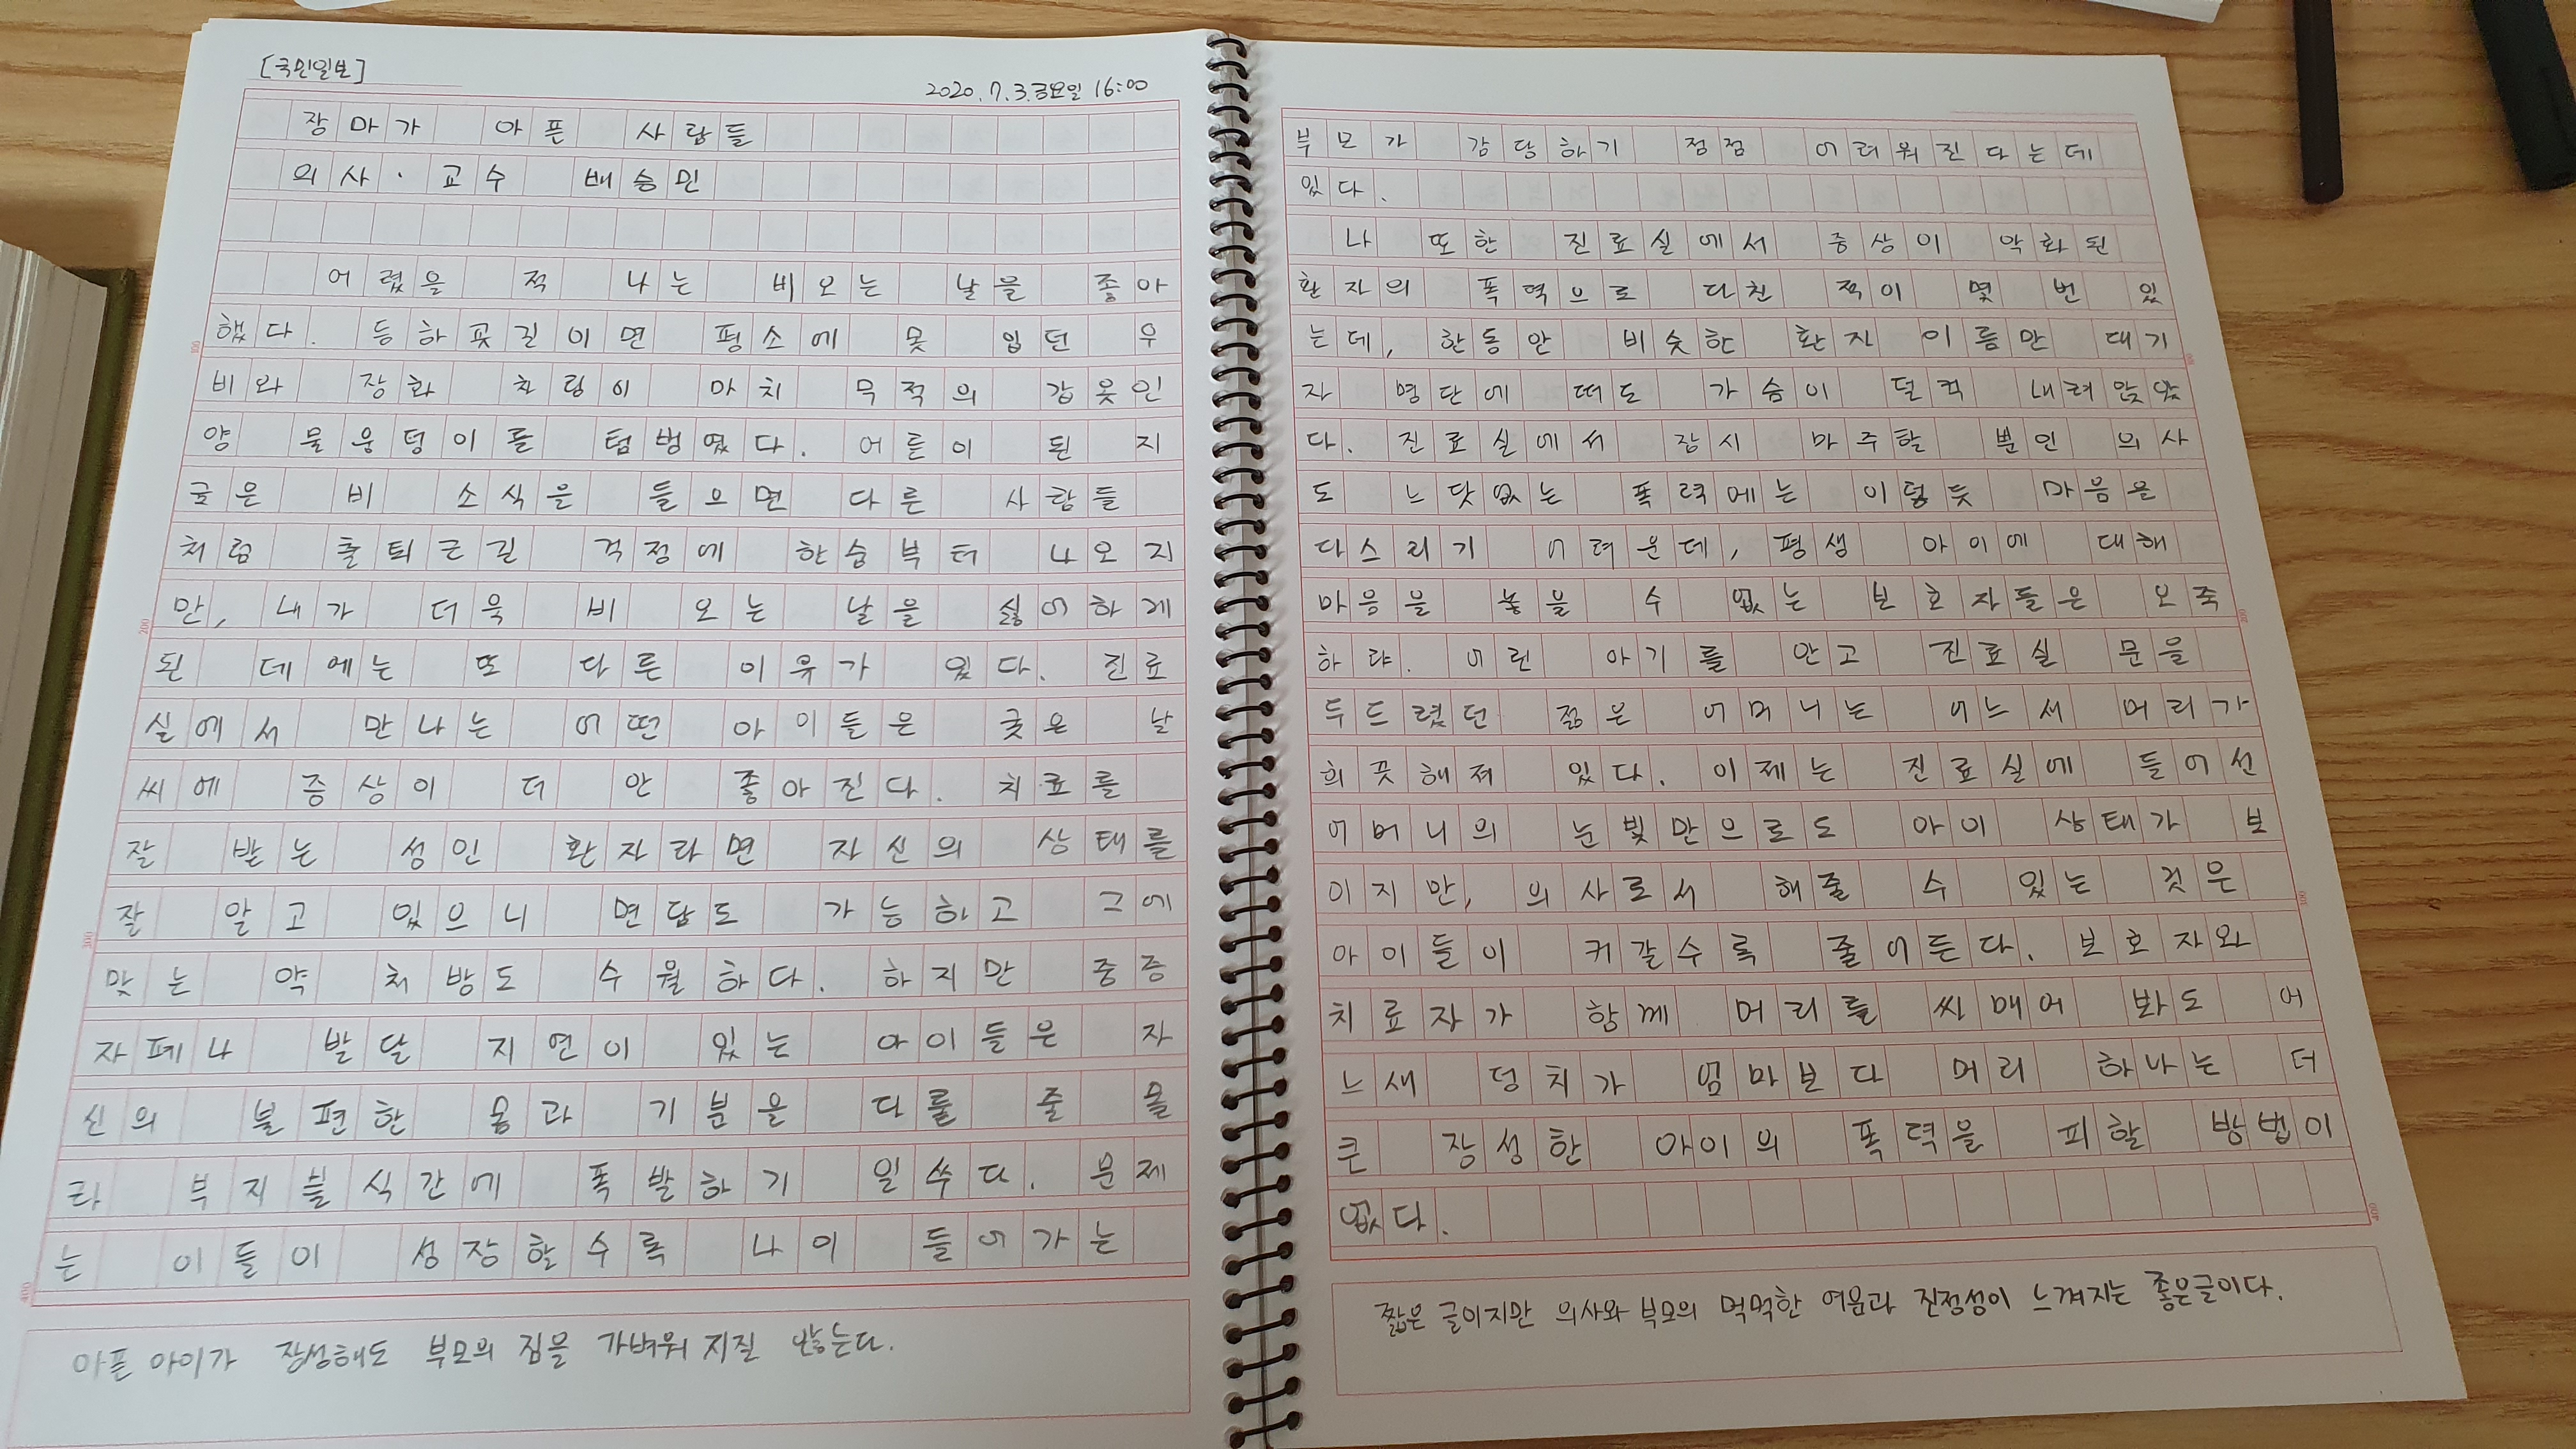 [국민일보]
2020.7.3.금요일 16:00
장마가 아픈 사람들
의사·교수 배승민
어렸을 적 나는 비오는 날을 좋아
했다. 등하굣길이면 평소에 못 입던 우
비와 장화 차림이 마치 무적의 갑옷인
양 물웅덩이를 텀벙였다. 어른이 된 지
금은 비 소식을 들으면 다른 사람들
처럼 출퇴근길 걱정에 한숨부터 나오지
만, 내가 더욱 비 오는 날을 싫어하게
된 데에는 또 다른 이유가 있다. 진료
실에서 만나는 어떤 아이들은 궂은 날
씨에 증상이 더 안 좋아진다. 치료를
잘 받는 성인 환자라면 자신의 상태를
잘 알고 있으니 면담도 가능하고 그에
맞는 약 처방도 수월하다. 하지만 중증
자폐나 발달 지연이 있는 아이들은 자
신의 불편한 몸과 기분을 다룰 줄 몰
라 부지불식간에 폭발하기 일쑤다. 문제
는 이들이 성장할수록 나이 들어가는
아픈 아이가 장성해도 부모의 짐을 가벼워 지질 않는다.
부모가 감당하기 점점 어려워진다는데
있다.
나 또한 진료실에서 증상이 악화된
환자의 폭력으로 다친 적이 몇 번 있
는데, 한동안 비슷한 환자 이름만 대기
자 명단에 떠도 가슴이 덜컥 내려앉았
다. 진료실에서 잠시 마주할 뿐인 의사
도 느닷없는 폭력에는 이렇듯 마음을
다스리기 어려운데, 평생 아이에 대해
마음을 놓을 수 없는 보호자들은 오죽
하랴. 어린 아기를 안고 진료실 문을
두드렸던 젊은 어머니는 어느새 머리가
희끗해져 있다. 이제는 진료실에 들어선
어머니의 눈빛만으로도 아이 상태가 보
이지만, 의사로서 해줄 수 있는 것은
아이들이 커갈수록 줄어든다. 보호자와
치료자가 함께 머리를 싸매어 봐도 어
느새 덩치가 엄마보다 머리 하나는 더
큰 장성한 아이의 폭력을 피할 방법이
없다.
짧은 글이지만 의사와 부모의 먹먹한 여운과 진정성이 느껴지는 좋은글이다.